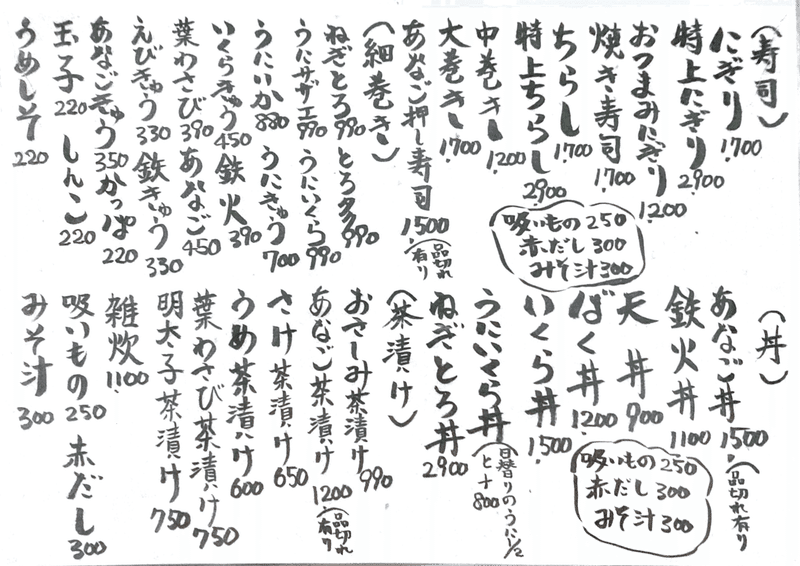 （寿司）
にぎり 1700
特上にぎり 2900
おつまみにぎり 1200
焼き寿司 1700
ちらし 1700
特上ちらし 2900
中巻き 1200
大巻き 1700
あなご押し寿司 1500（品切れ有り）
吸いもの 250
赤だし 300
みそ汁 300
（細巻き）
ねぎとろ 990 とろタク 990
うにサザエ 990 うにいくら 990
うにいか 880 うにきゅう 700
いくらきゅう 450 鉄火 390
葉わさび 390 あなご 450
えびきゅう 330 鉄きゅう 330
あなごきゅう 350 かっぱ 220
玉子 220 しんこ 220
うめしそ 220
（丼）
あなご丼 1500（品切れ有り）
鉄火丼 1100
天丼 900
ばく丼 1200
いくら丼 1500
うにいくら丼（日替りのうに1/2
ねぎとろ丼 2900
吸いもの 250
赤だし 300
みそ汁 300
（茶漬け）
おさしみ茶漬け 990
あなご茶漬け 1200（品切れ有り）
さけ茶漬け 650
うめ茶漬け 600
葉わさび茶漬け 750
明太子茶漬け 750
雑炊 1100
吸いもの 250 赤だし 300
みそ汁 300